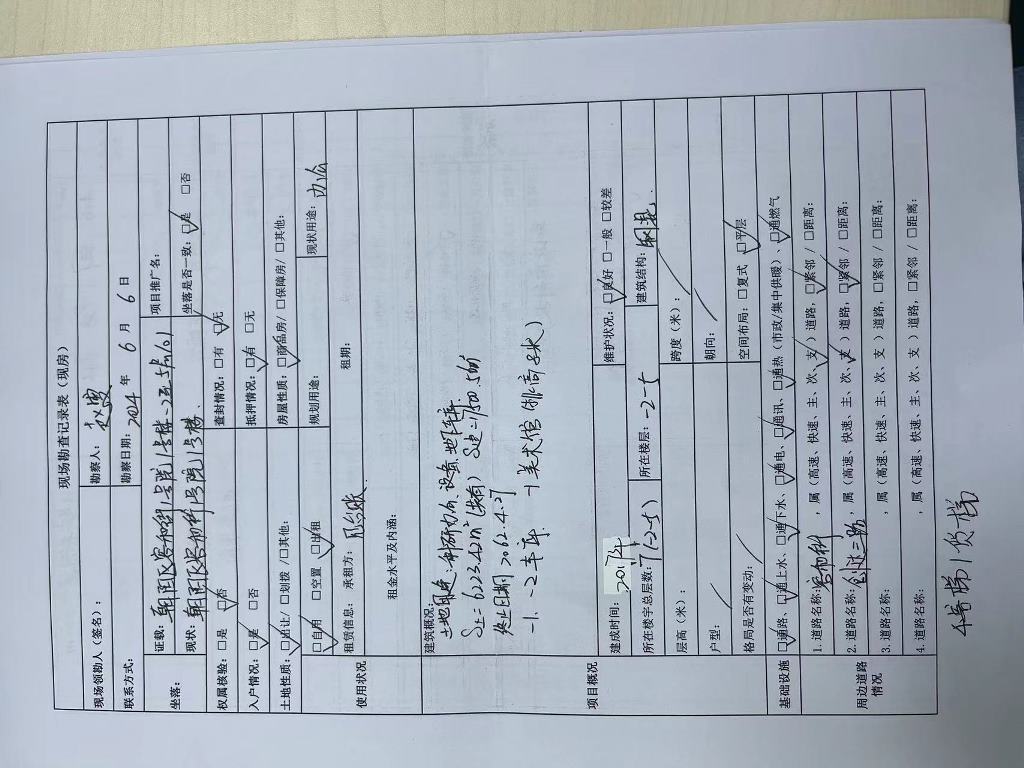 现场勘查记录表（现房）
现场领勘人（签名）： 勘察人：
联系方式： 勘察日期：2024 年 6 月 6 日
坐落： 证载：朝阳区容和路1号院1号楼-2至5层101 项目推广名：
现状：朝阳区容和路1号院1号楼 坐落是否一致：☑是 □否
权属核验：□是 ☑否 查封情况：□有 ☑无
入户情况：☑是 □否 抵押情况：☑有 □无
土地性质：☑出让 □划拨 /□其他： 房屋性质：☑商品房/ □保障房/ □其他：
使用状况 ☑自用 □空置 ☑出租 规划用途： 现状用途：办公
租赁信息：承租方： 租期：
租金水平及内涵：
项目概况 建筑概况：
土地用途：科研办公、设备、地下车库
S土=6223.42m²（共有）
终止日期 2062.4.27
-1、-2车库
1美术馆
建成时间：2017年 维护状况：☑良好 □一般 □较差
所在楼宇总层数：7（-2-5） 所在楼层：-2-5 建筑结构：钢混
层高（米）： 跨度（米）：
户型： 朝向：
格局是否有变动： 空间布局：□复式 ☑平层
基础设施 ☑通路、☑通上水、☑通下水、☑通电、☑通讯、☑通热（市政/集中供暖）、☑通燃气
周边道路情况 1. 道路名称：容和路 ，属（高速、快速、主、次、支）道路，☑紧邻 / □距离：
2. 道路名称：创达二路 ，属（高速、快速、主、次、支）道路，☑紧邻 / □距离：
3. 道路名称： ，属（高速、快速、主、次、支）道路，□紧邻 / □距离：
4. 道路名称： ，属（高速、快速、主、次、支）道路，□紧邻 / □距离：
4客梯1货梯